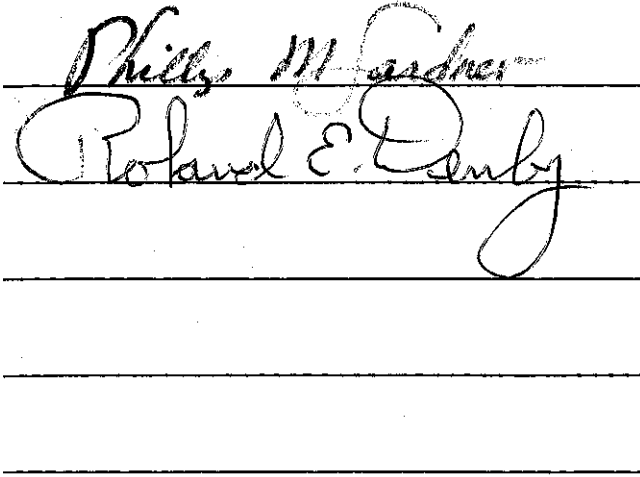 Phillip M Gardner
Roland E. Denby